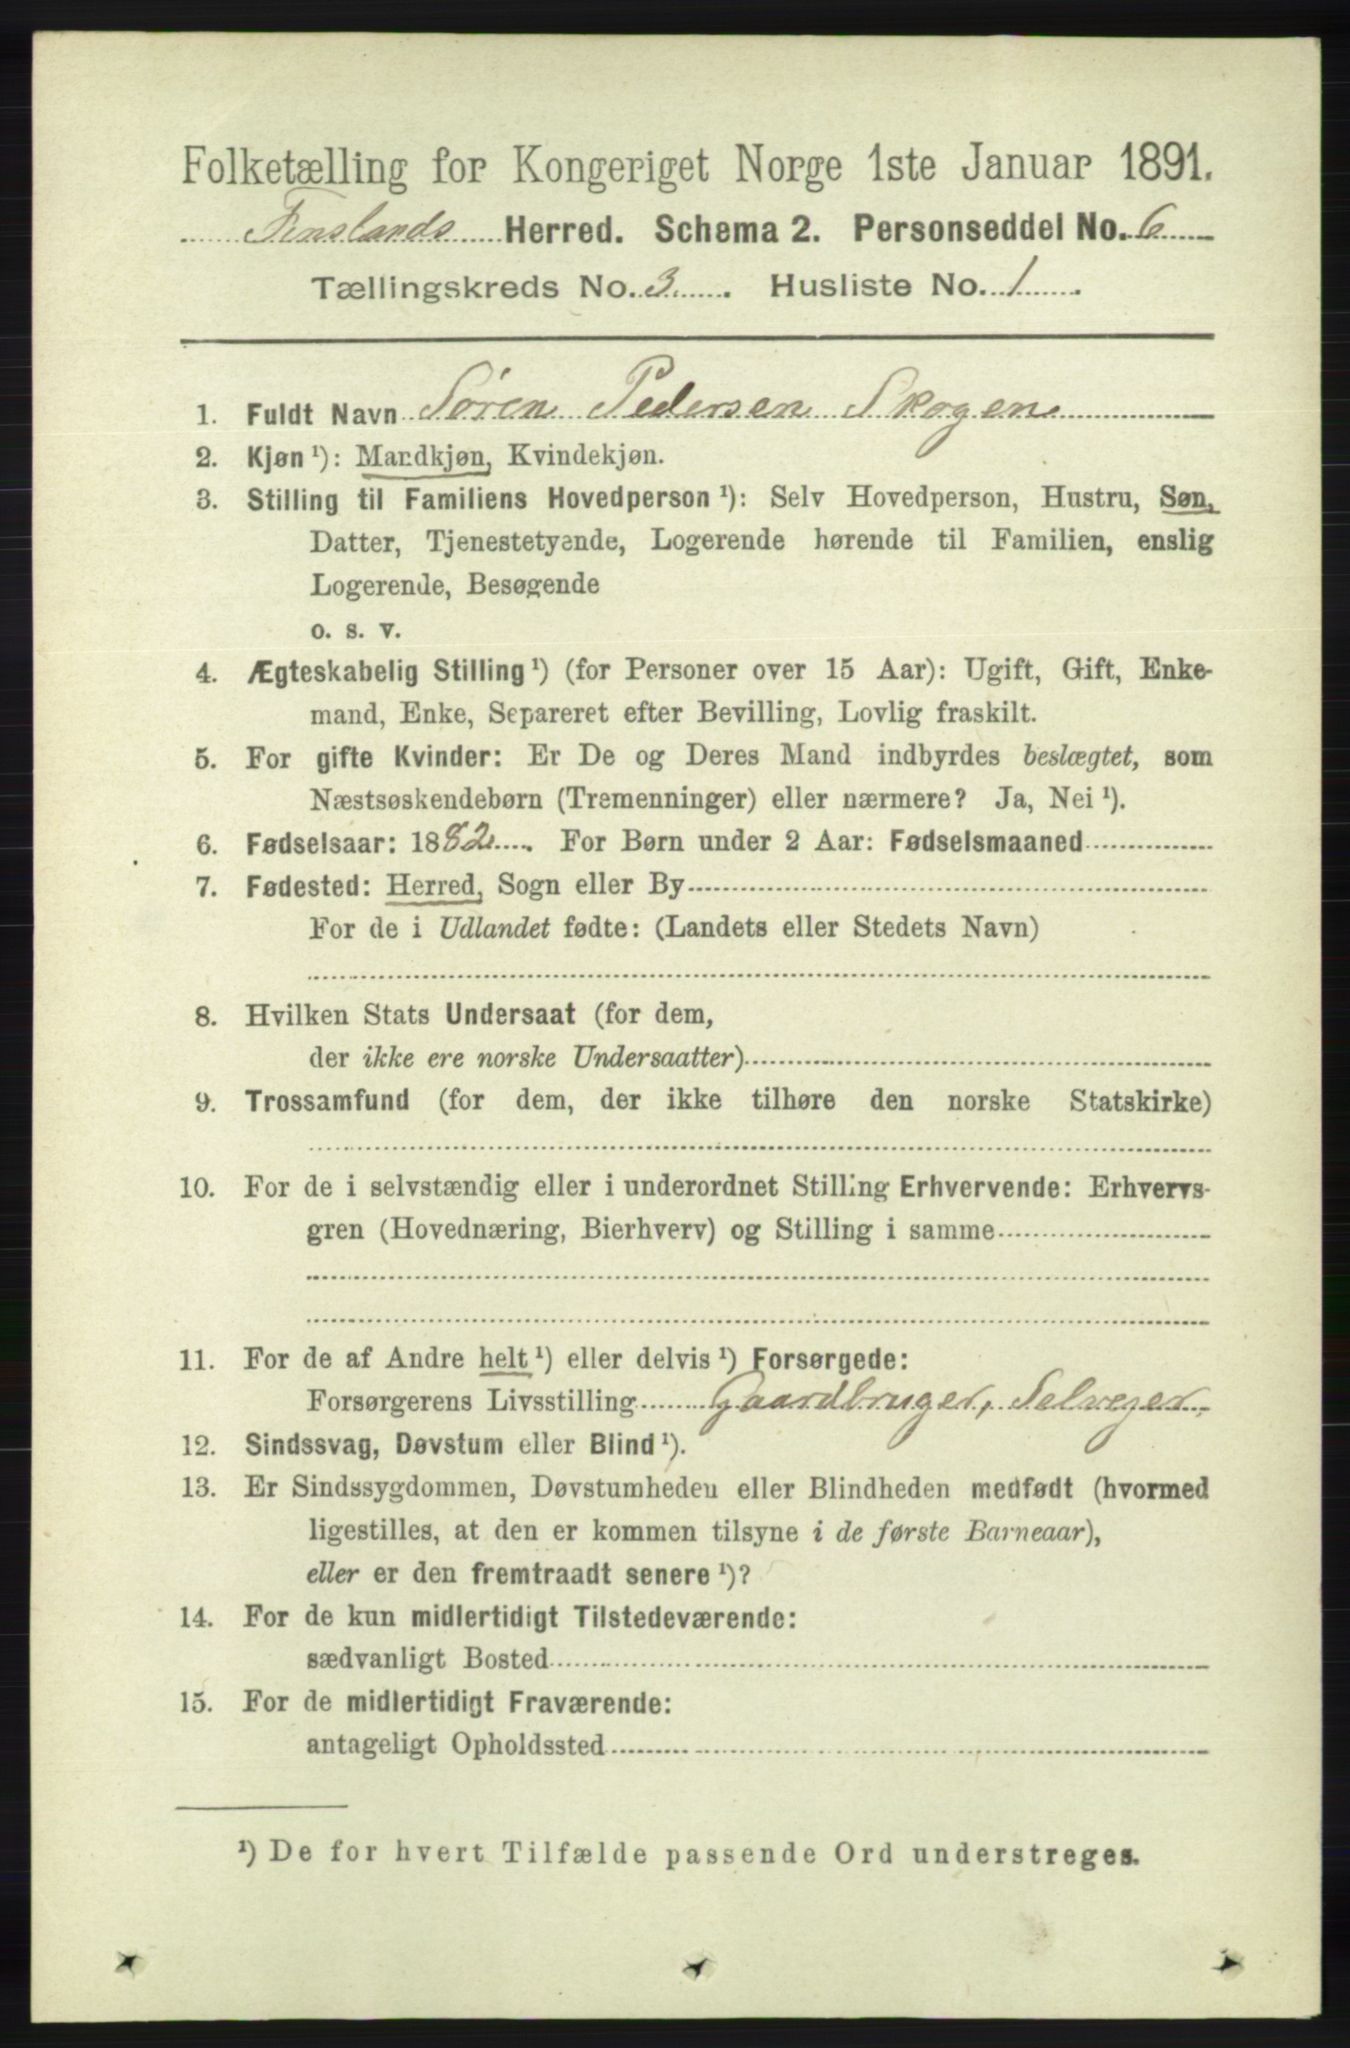 Folketælling for Kongeriget Norge 1ste Januar 1891.
Finslands Herred. Schema 2. Personseddel No. 6
Tællingskreds No. 3 . Husliste No. 1 .
1. Fuldt Navn Søren Pedersen Skogen
2. Kjøn ¹): Mandkjøn, Kvindekjøn.
3. Stilling til Familiens Hovedperson ¹): Selv Hovedperson, Hustru, Søn,
Datter, Tjenestetyende, Logerende hørende til Familien, enslig
Logerende, Besøgende
o. s. v.
4. Ægteskabelig Stilling ¹) (for Personer over 15 Aar): Ugift, Gift, Enke-
mand, Enke, Separeret efter Bevilling, Lovlig fraskilt.
5. For gifte Kvinder: Er De og Deres Mand indbyrdes beslægtet, som
Næstsøskendebørn (Tremenninger) eller nærmere? Ja, Nei ¹).
6. Fødselsaar: 1882 . For Børn under 2 Aar: Fødselsmaaned
7. Fødested: Herred, Sogn eller By
For de i Udlandet fødte: (Landets eller Stedets Navn)
8. Hvilken Stats Undersaat (for dem,
der ikke ere norske Undersaatter)
9. Trossamfund (for dem, der ikke tilhøre den norske Statskirke)
10. For de i selvstændig eller i underordnet Stilling Erhvervende: Erhvervs-
gren (Hovednæring, Bierhverv) og Stilling i samme
11. For de af Andre helt ¹) eller delvis ¹) Forsørgede:
Forsørgerens Livsstilling Gaardbruger, Selveger
12. Sindssvag, Døvstum eller Blind ¹).
13. Er Sindssygdommen, Døvstumheden eller Blindheden medfødt (hvormed
ligestilles, at den er kommen tilsyne i de første Barneaar),
eller er den fremtraadt senere ¹)?
14. For de kun midlertidigt Tilstedeværende:
sædvanligt Bosted
15. For de midlertidigt Fraværende:
antageligt Opholdssted
¹) De for hvert Tilfælde passende Ord understreges.